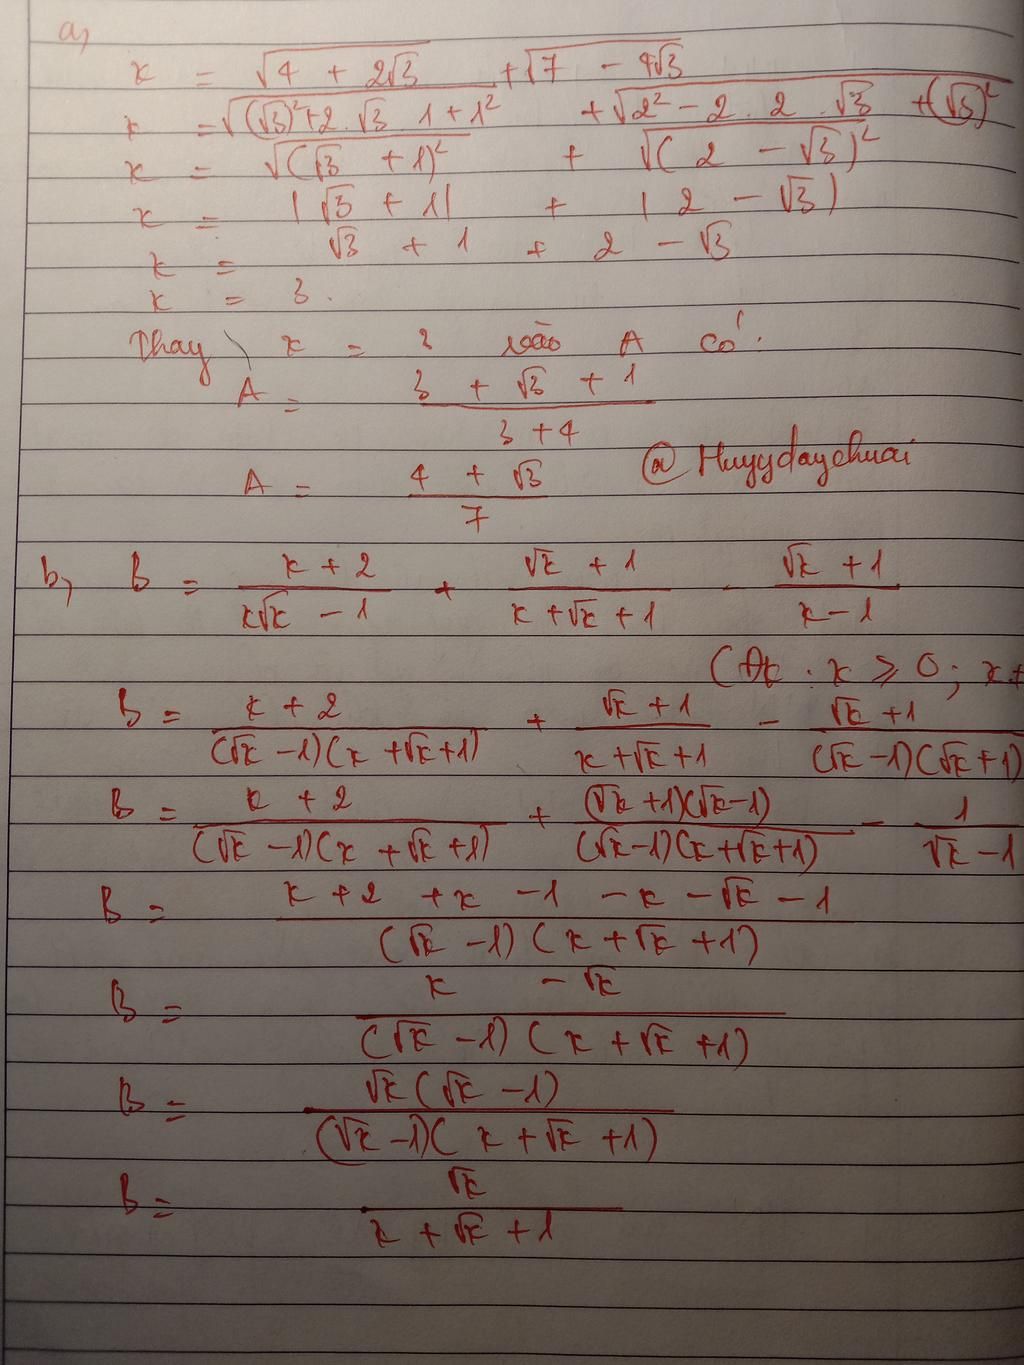 a,
x = √(4 + 2√3) + √(7 - 4√3)
x = √((√3)² + 2.√3 1 + 1²) + √(2² - 2. 2 .√3 + (√3)²)
x = √((√3 + 1)²) + √((2 - √3)²)
x = |√3 + 1| + |2 - √3|
x = √3 + 1 + 2 - √3
x = 3.
Thay x = 3 vào A có:
A = (3 + √3 + 1)/(3 + 4)
A = (4 + √3)/7
@Huyydaychuai
b, B = (x + 2)/(x√x - 1) + (√x + 1)/(x + √x + 1) - (√x + 1)/(x - 1)
(Đk : x ≥ 0; x ≠
B = (x + 2)/((√x - 1)(x + √x + 1)) + (√x + 1)/(x + √x + 1) - (√x + 1)/((√x - 1)(√x + 1))
B = (x + 2)/((√x - 1)(x + √x + 1)) + ((√x + 1)(√x - 1))/((√x - 1)(x + √x + 1)) - 1/(√x - 1)
B = (x + 2 + x - 1 - x - √x - 1)/((√x - 1)(x + √x + 1))
B = (x - √x)/((√x - 1)(x + √x + 1))
B = (√x(√x - 1))/((√x - 1)(x + √x + 1))
B = √x/(x + √x + 1)